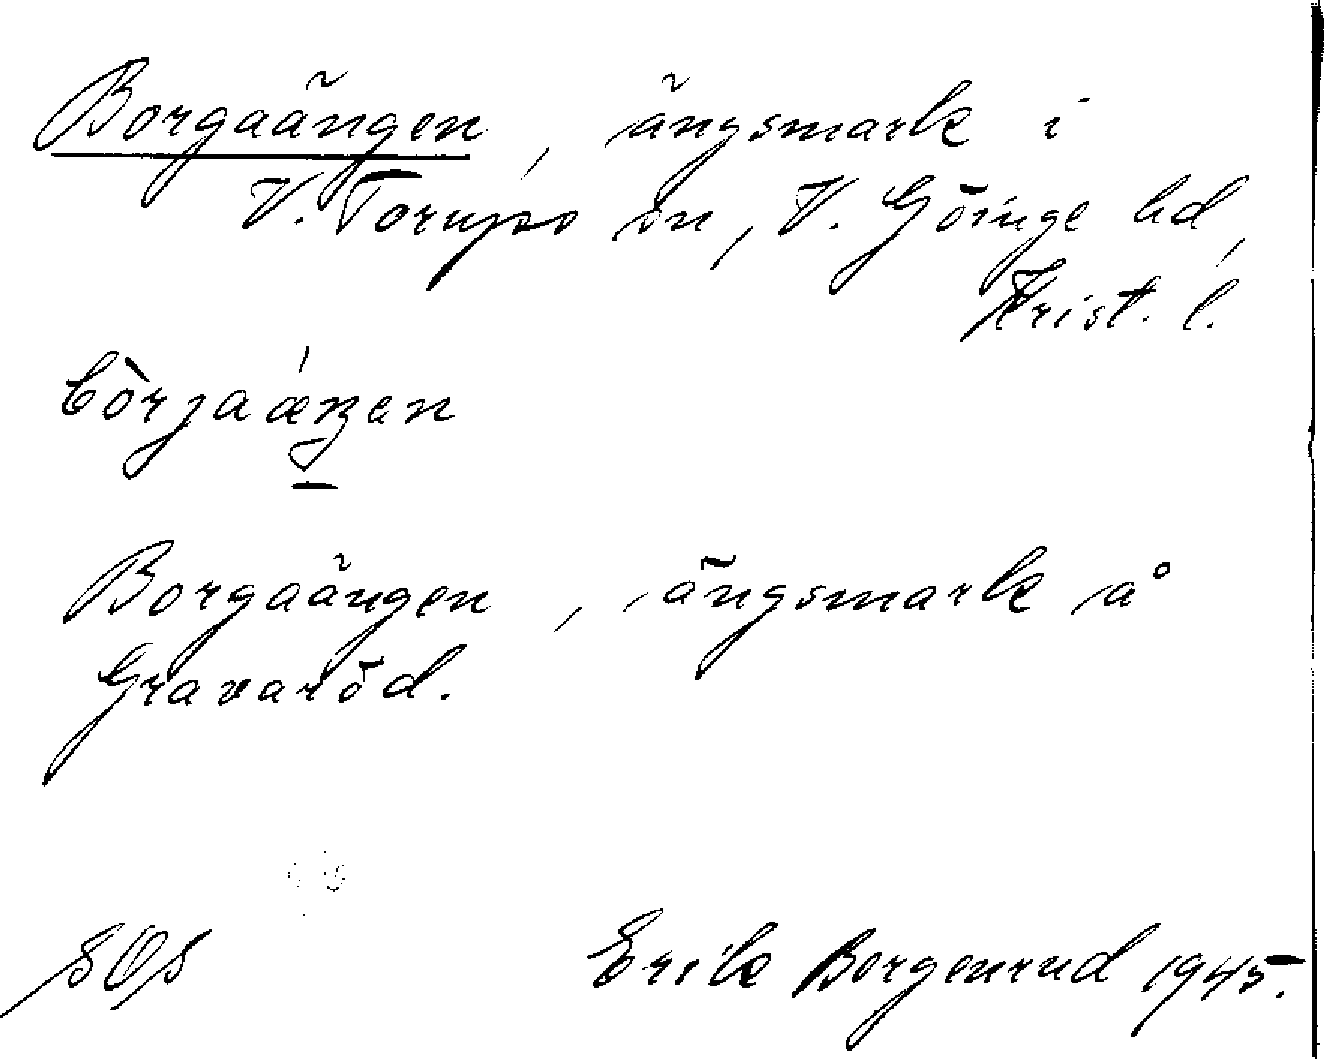 Borgaängen, ängsmark i
V. Torups sn, V. Göinge hd,
Krist. l.
bòrgaáŋen
Borgaängen, ängsmark å
Gravaröd.
SOS Erik Borgenrud 1945.